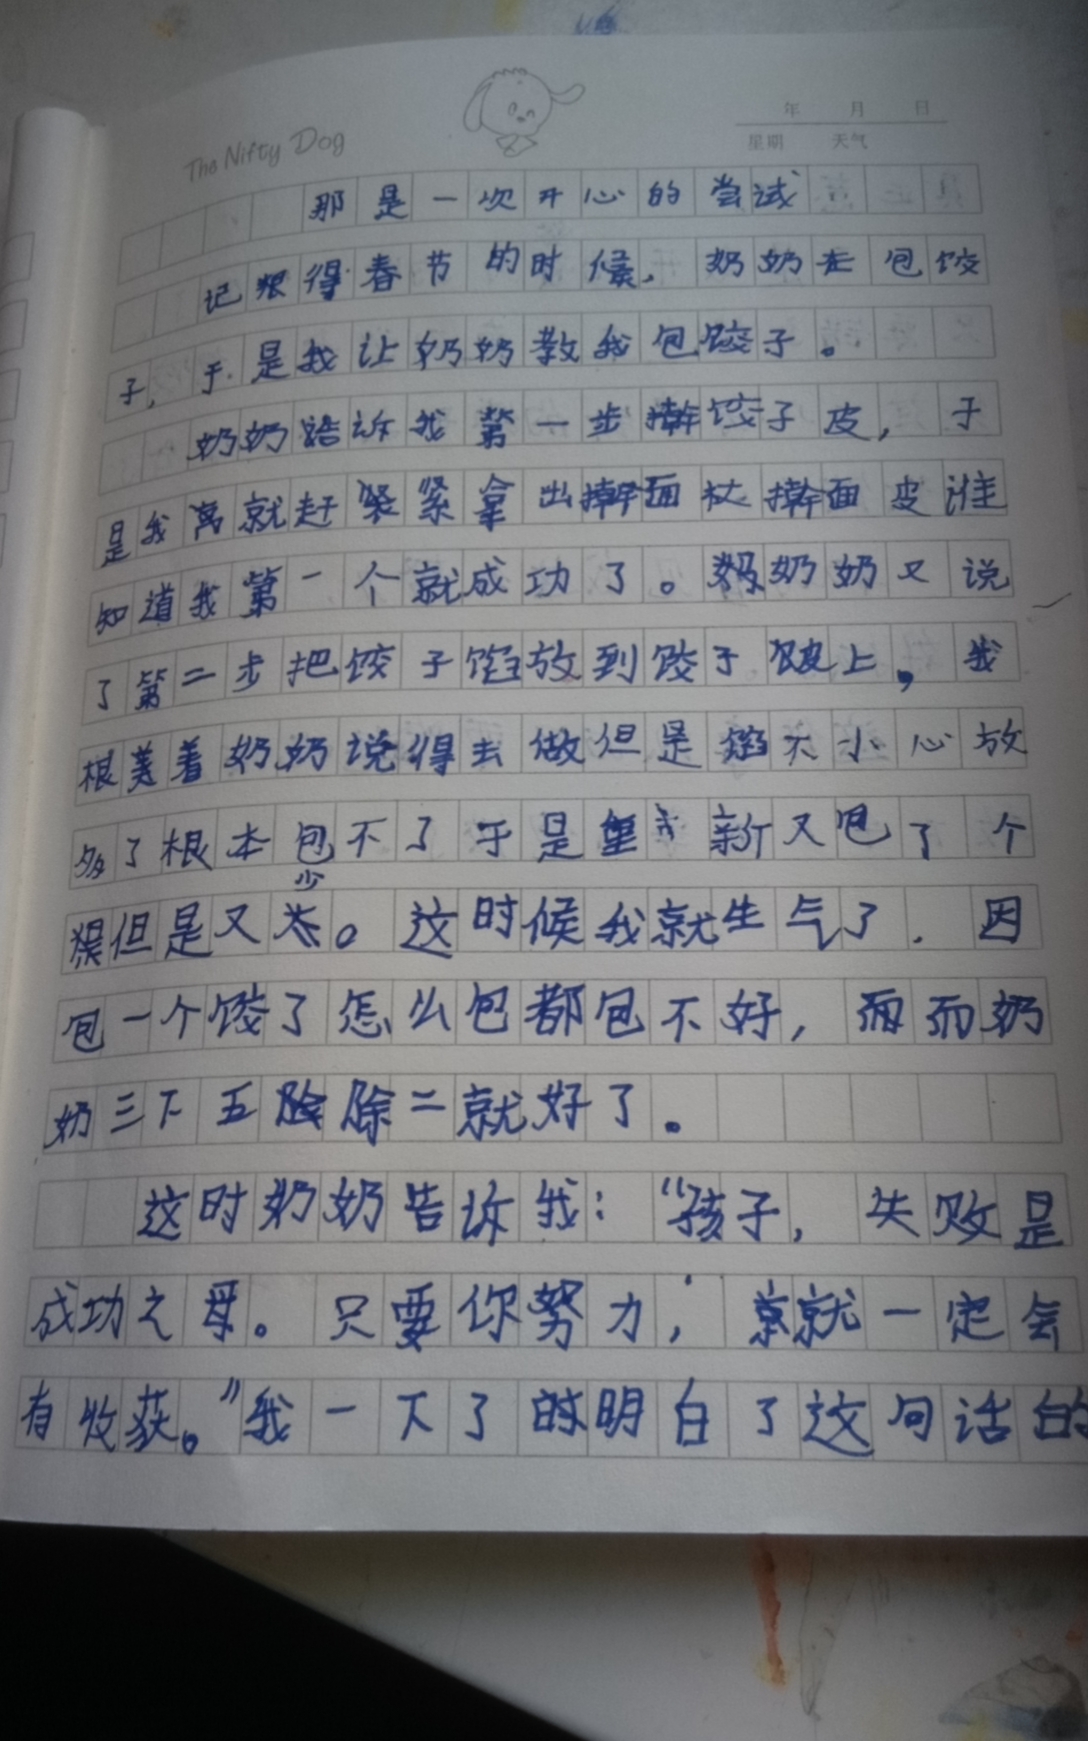 The Nifty Dog
年 月 日
星期 天气
那是一次开心的尝试
记得春节的时候，奶奶在包饺
子，于是我让奶奶教我包饺子。
奶奶告诉我第一步擀饺子皮，于
是我就赶紧紧拿出擀面杖擀面皮谁
知道我第一个就成功了。奶奶又说
了第二步把饺子馅放到饺子皮上，我
根着奶奶说得去做但是馅不小心放
多了根本包不了于是重新又包了个
但是又少。这时候我就生气了．因
包一个饺了怎么包都包不好，而奶
奶三下五除二就好了。
这时奶奶告诉我：“孩子，失败是
成功之母。只要你努力，就一定会
有收获。”我一下了明白了这句话的